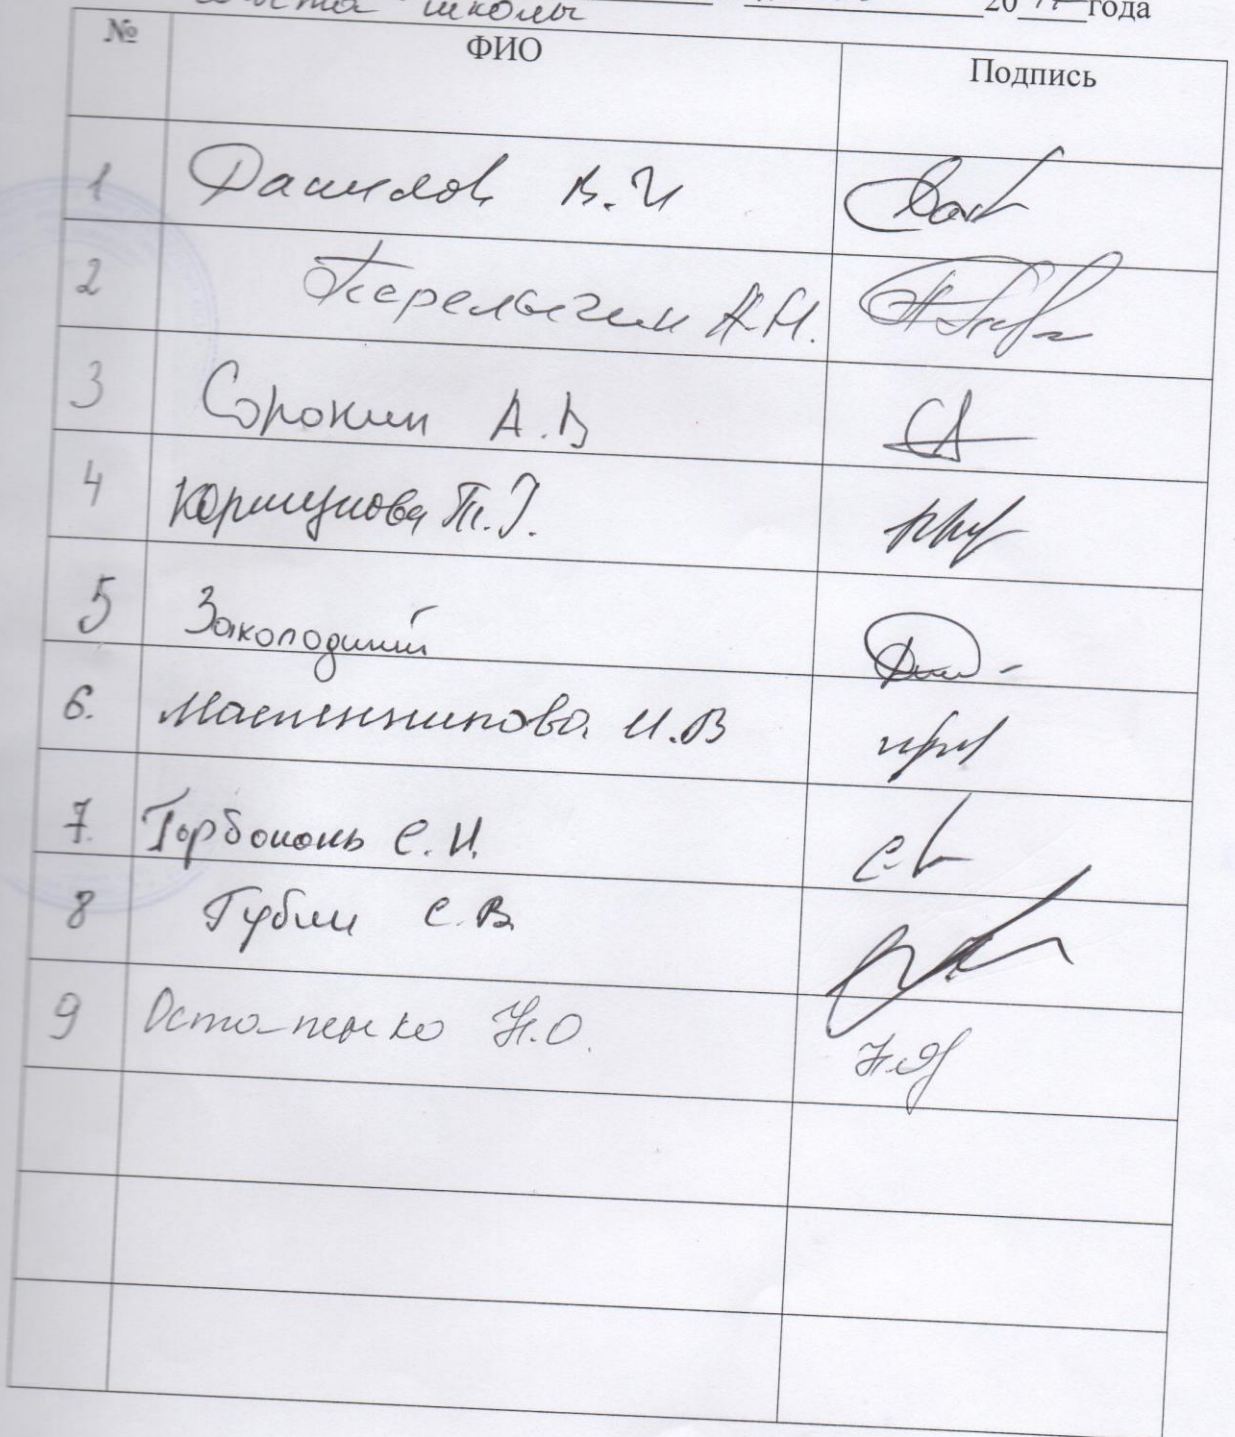 школы 20 года
№ ФИО Подпись
1 Данилов В.И
2 Перелыгин А.Н.
3 Сорокин А.В
4 Коршунова Т.Г.
5 Заколодний
6. Масленникова И.В
7. Горбоконь С.И.
8 Губин С.В
9 Остапенко Н.О.